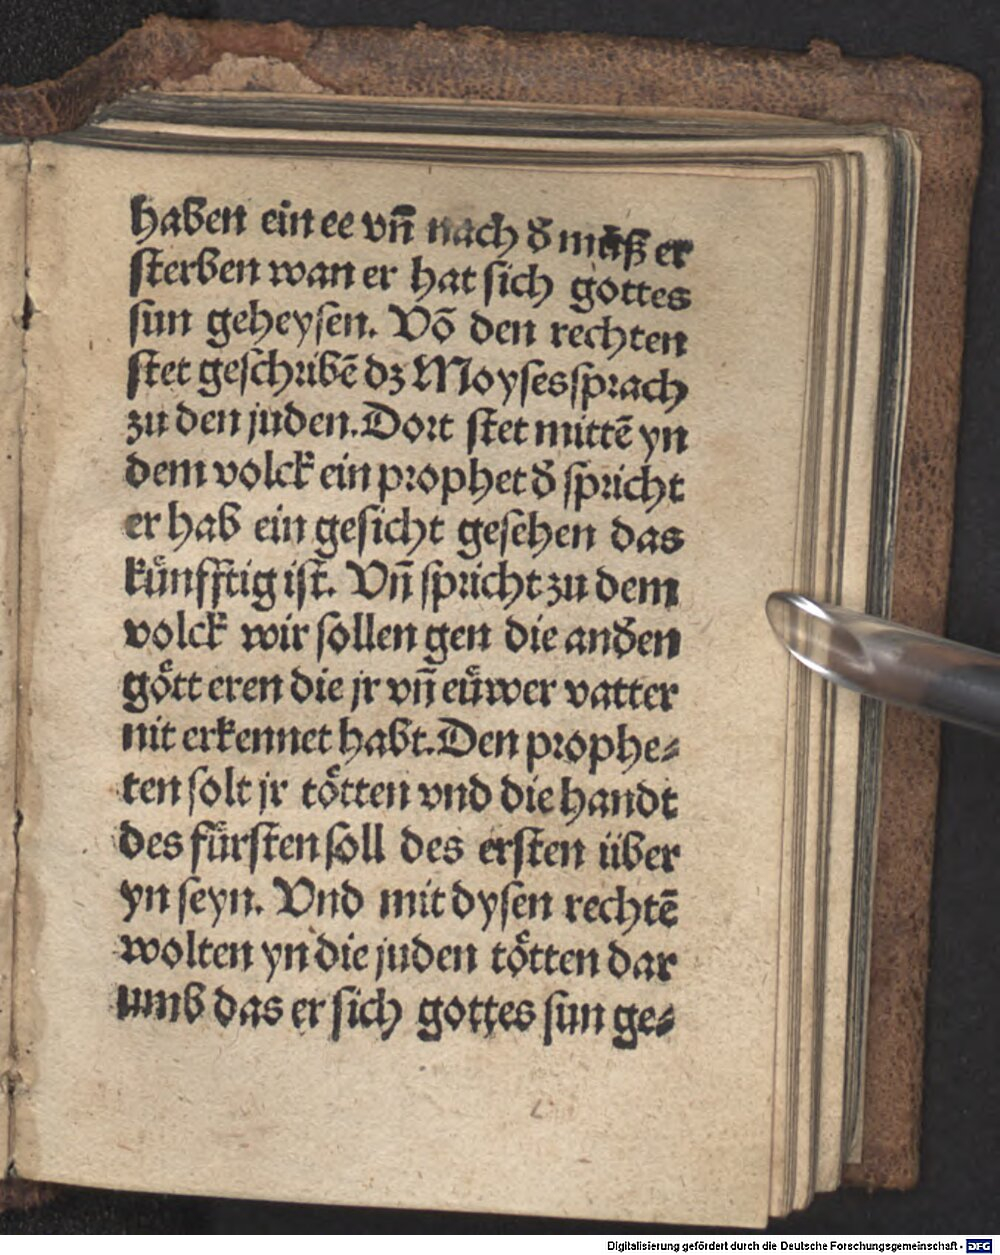 haben ein ee vñ nach ð můß er
sterben wan er hat sich gottes
sun geheysen. Võ den rechten
stet geschribē dz Moyses sprach
zu den juden. Dort stet mittē yn
dem volck ein prophet ð spricht
er hab ein gesicht gesehen das
künfftig ist. Vñ spricht zu dem
volck wir sollen gen die anðen
gött eren die jr vñ eüwer vatter
nit erkennet habt. Den prophe⸗
ten solt jr tötten vnd die handt
des fürsten soll des ersten über
yn seyn. Vnd mit dysen rechtē
wolten yn die juden tötten dar
umb das er sich gottes sun ge⸗
Digitalisierung gefördert durch die Deutsche Forschungsgemeinschaft - DFG